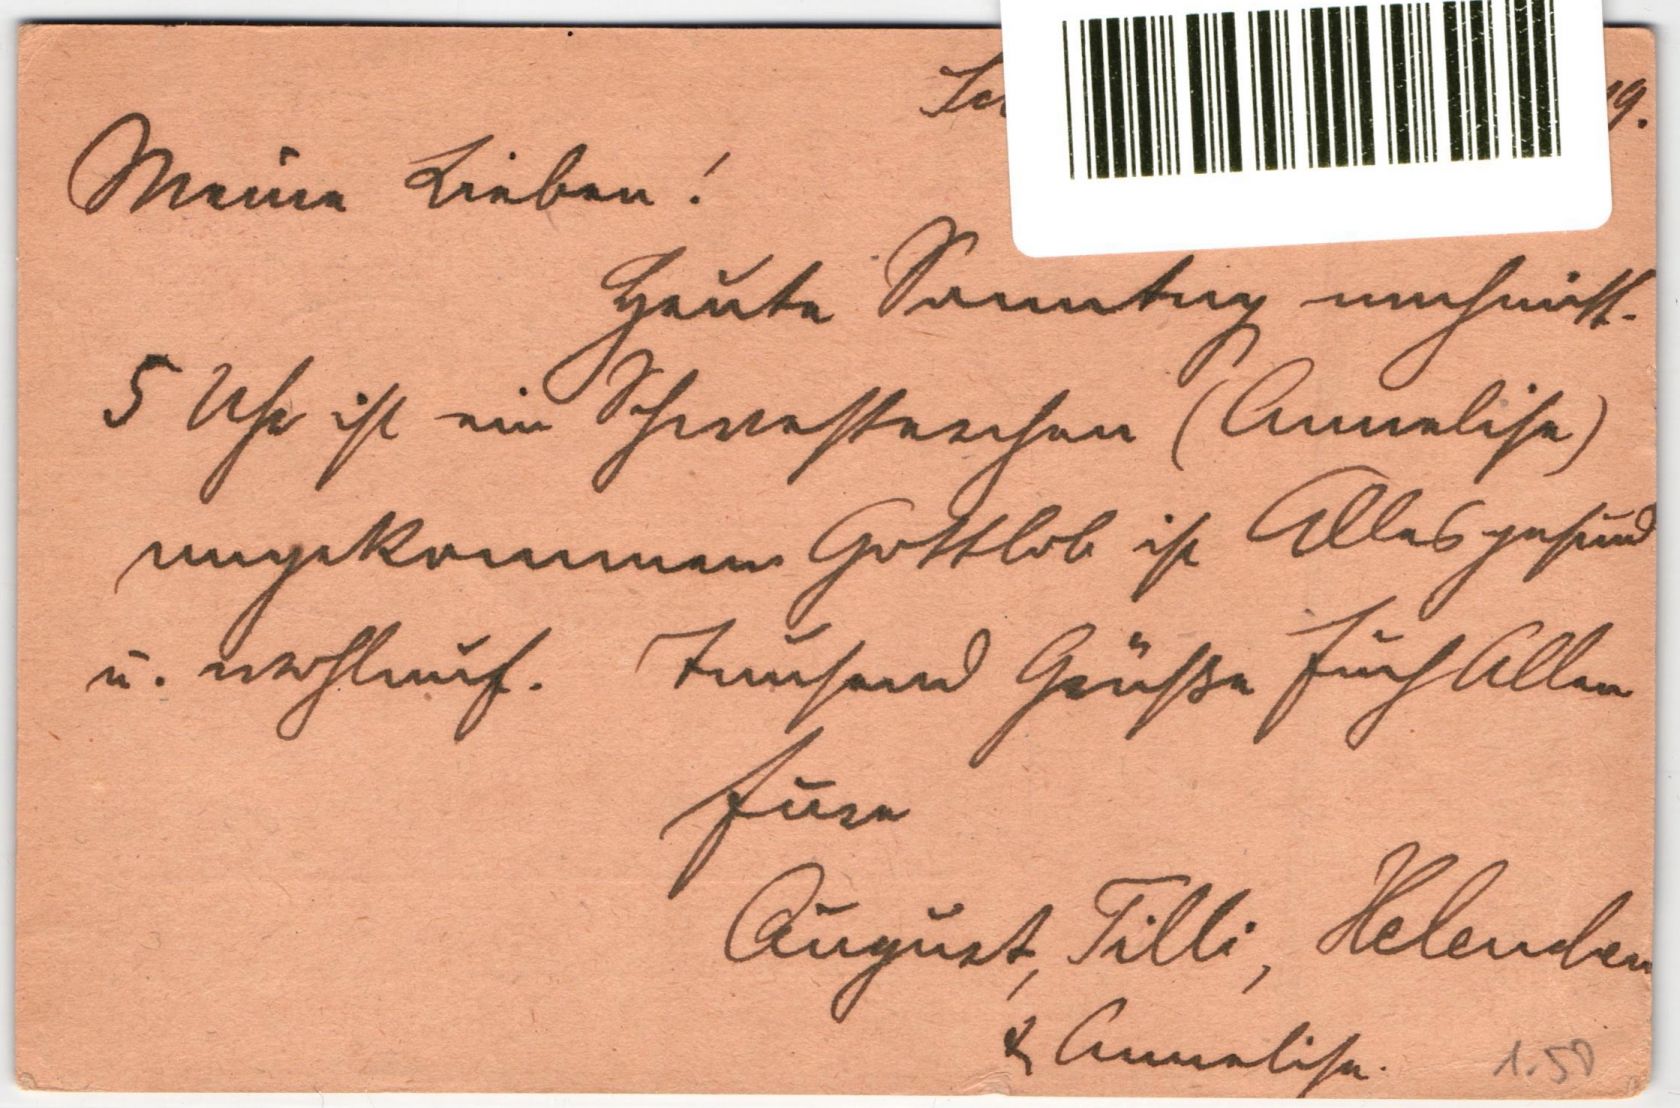 19.
Meine Lieben!
Heute Sonntag nachmitt.
5 Uhr ist ein Schwesterchen (Annelise)
angekommen Gottlob ist Alles gesund
u. wohlauf. Tausend Grüße Euch Allen
Eure
August, Tilli, Helenchen
& Annelise.
1.50